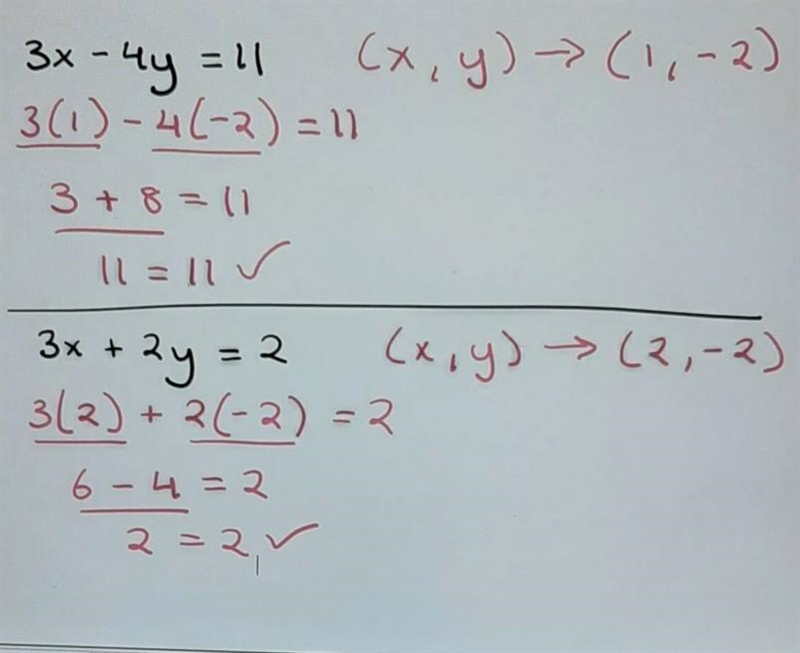 3x - 4y = 11 (x, y) → (1, -2)
3(1) - 4(-2) = 11
3 + 8 = 11
11 = 11 ✓
3x + 2y = 2 (x, y) → (2, -2)
3(2) + 2(-2) = 2
6 - 4 = 2
2 = 2, ✓